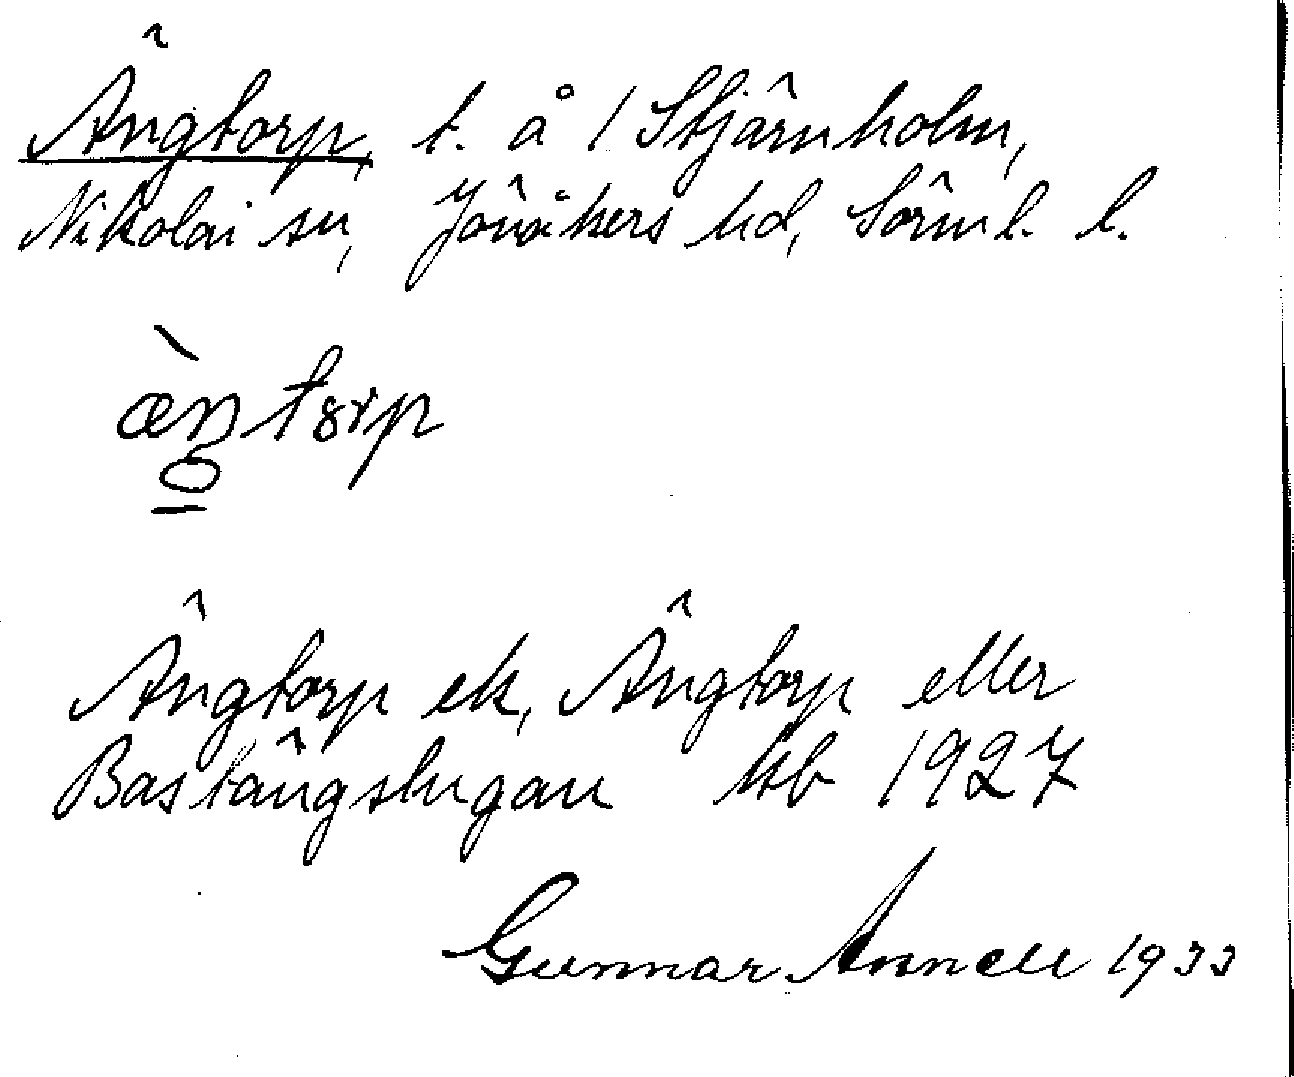 Ängtorp, t. å / Stjärnholm,
Nikolai sn, Jönåkers hd, Sörml. l.
æ̀ŋtorp
Ängtorp ek, Ängtorp eller
Bastängstugan kb 1927
Gunnar Annell 1933